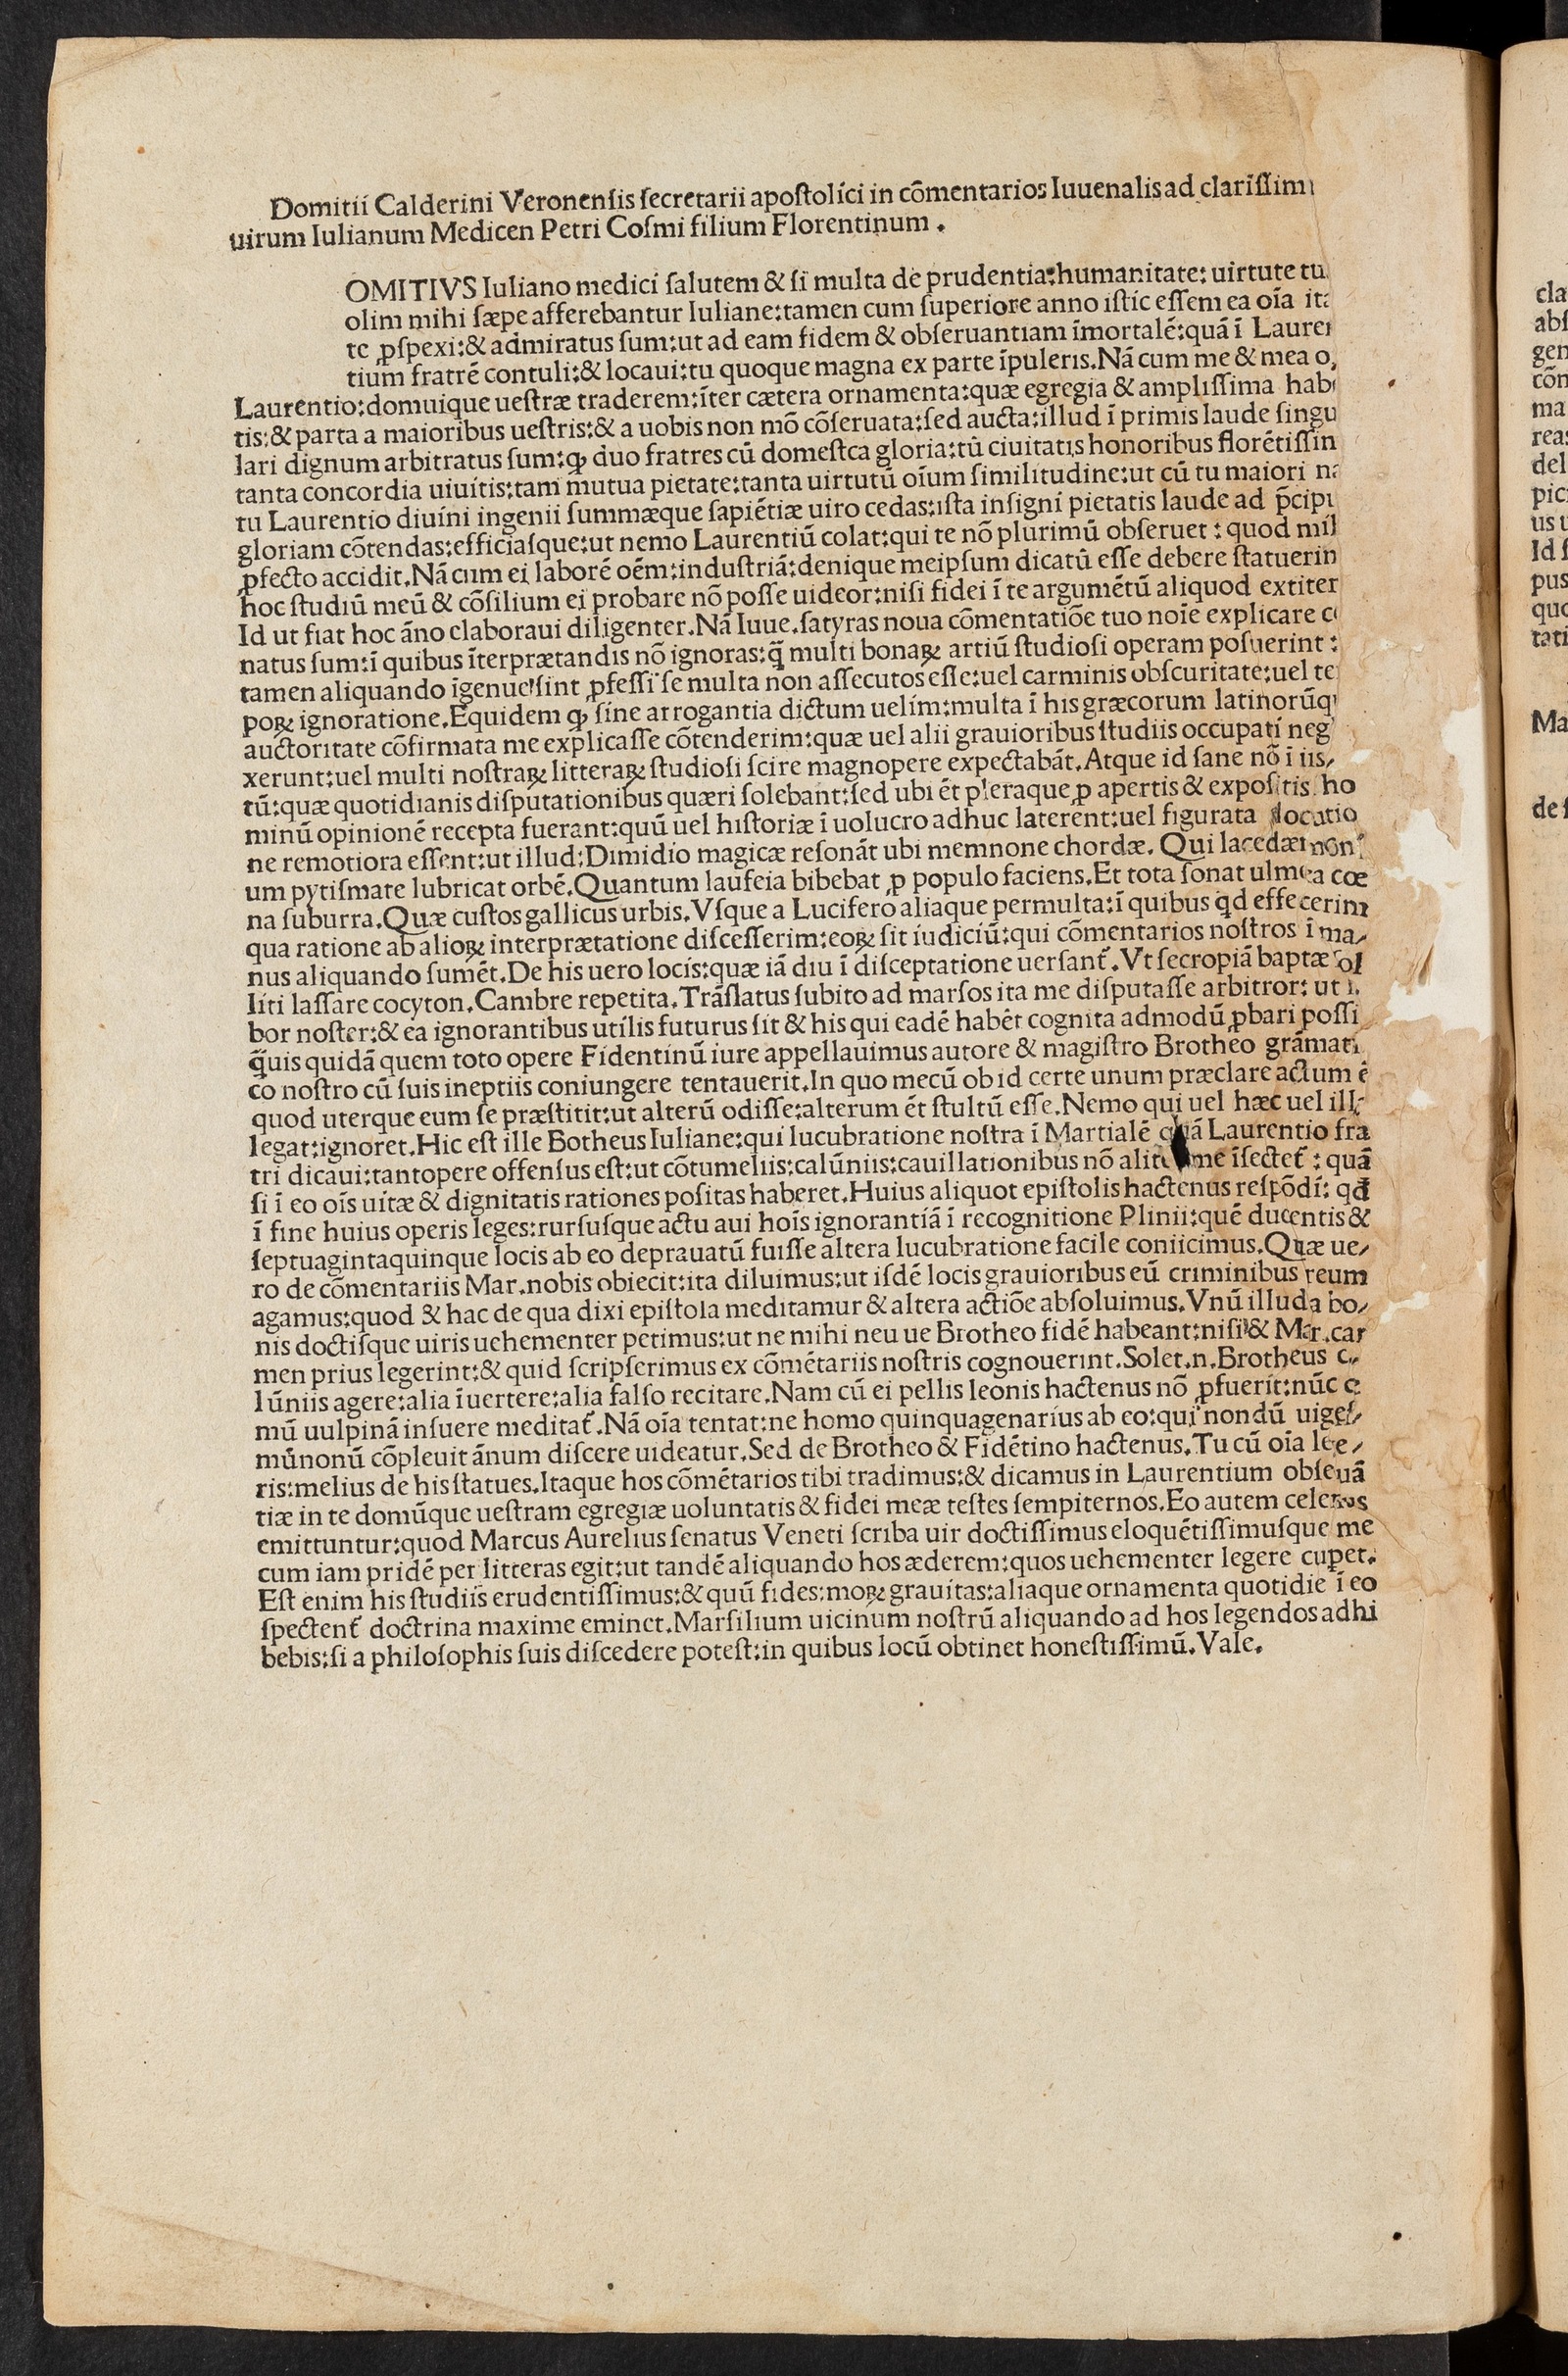 Domitii Calderini Veronenſis ſecretarii apoſtolici in cōmentarios Iuuenalis ad clariſſim
uirum Iulianum Medicen Petri Coſmi filium Florentinum .
OMITIVS Iuliano medici ſalutem & ſi multa de prudentia:humanitate: uirtute
olim mihi ſæpe afferebantur Iuliane:tamen cum ſuperiore anno iſtic eſſem ea oīa
te ꝓſpexi:& admiratus ſum:ut ad eam fidem & obſeruantiam īmortalē:quā ī
tium fratrē contuli:& locaui:tu quoque magna ex parte īpuleris.Nā cum me & mea
Laurentio:domuique ueſtræ traderem:īter cætera ornamenta:quæ egregia & ampliſſima
tis:& parta a maioribus ueſtris:& a uobis non mō cōſeruata:ſed aucta:illud ī primis laude ſingu
lari dignum arbitratus ſum:ꝙ duo fratres cū domeſtca gloria:tū ciuitatis honoribus
tanta concordia uiuitis:tam mutua pietate:tanta uirtutū oīum ſimilitudine:ut cū tu maiori
tu Laurentio diuini ingenii ſummæque ſapiētiæ uiro cedas:iſta inſigni pietatis laude ad
gloriam cōtendas:efficiaſque:ut nemo Laurentiū colat:qui te nō plurimū obſeruet : quod
ꝓfecto accidit.Nā cum ei laborē oēm:induſtriā:denique meipſum dicatū eſſe debere
hoc ſtudiū meū & cōſilium ei probare nō poſſe uideor:niſi fidei ī te argumētū aliquod
Id ut fiat hoc āno elaboraui diligenter.Nā Iuue.ſatyras noua cōmentatiōe tuo noīe explicare
natus ſum:ī quibus īterprætandis nō ignoras:q̄ multi bonaꝝ artiū ſtudioſi operam poſuerint :
tamen aliquando īgenue ſint ꝓfeſſi ſe multa non aſſecutos eſſe:uel carminis obſcuritate:uel
poꝝ ignoratione.Equidem ꝙ ſine arrogantia dictum uelim:multa ī his græcorum
auctoritate cōfirmata me explicaſſe cōtenderim:quæ uel alii grauioribus ſtudiis occupati
xerunt:uel multi noſtraꝝ litteraꝝ ſtudioſi ſcire magnopere expectabāt.Atque id ſane nō ī iis
tū:quæ quotidianis diſputationibus quæri ſolebant:ſed ubi ēt pleraque ꝓ apertis & expoſitis ho
minū opinionē recepta fuerant:quū uel hiſtoriæ ī uolucro adhuc laterent:uel figurata
ne remotiora eſſent:ut illud:Dimidio magicæ reſonāt ubi memnone chordæ. Qui
um pytiſmate lubricat orbē.Quantum laufeia bibebat ꝓ populo faciens.Et tota ſonat ulmea cœ
na ſuburra.Quæ cuſtos gallicus urbis.Vſque a Lucifero aliaque permulta:ī quibus qd effecerim
qua ratione ab alioꝝ interprætatione diſceſſerim:eoꝝ ſit iudiciū:qui cōmentarios noſtros ī ma-
nus aliquando ſumēt.De his uero locis:quæ iā diu ī diſceptatione uerſant᷑.Vt ſecropiā baptæ
liti laſſare cocyton.Cambre repetita.Trāſlatus ſubito ad marſos ita me diſputaſſe arbitror: ut
bor noſter:& ea ignorantibus utilis futurus ſit & his qui eadē habēt cognita admodū ꝓbari poſſi
q̄uis quidā quem toto opere Fidentinū iure appellauimus autore & magiſtro Brotheo grāmati
co noſtro cū ſuis ineptiis coniungere tentauerit.In quo mecū ob id certe unum præclare actum ē
quod uterque eum ſe præſtitit:ut alterū odiſſe:alterum ēt ſtultū eſſe.Nemo qui uel hæc uel
legat:ignoret.Hic eſt ille Botheus Iuliane:qui lucubratione noſtra ī Martialē quā Laurentio fra
tri dicaui:tantopere offenſus eſt:ut cōtumeliis:calūniis:cauillationibus nō me īſectet᷑ : quā
ſi ī eo oīs uitæ & dignitatis rationes poſitas haberet.Huius aliquot epiſtolis hactenus reſpōdi: qđ
ī fine huius operis leges:rurſuſque actu aui hoīs ignorantiā ī recognitione Plinii:quē ducentis &
ſeptuagintaquinque locis ab eo deprauatū fuiſſe altera lucubratione facile coniicimus.Quæ ue-
ro de cōmentariis Mar.nobis obiecit:ita diluimus:ut iſdē locis grauioribus eū criminibus reum
agamus:quod & hac de qua dixi epiſtola meditamur & altera actiōe abſoluimus.Vnū illud a bo-
nis doctiſque uiris uehementer petimus:ut ne mihi neu ue Brotheo fidē habeant:niſi & Mar.car
men prius legerint:& quid ſcripſerimus ex cōmētariis noſtris cognouerint.Solet.n.Brotheus
lūniis agere:alia īuertere:alia falſo recitare.Nam cū ei pellis leonis hactenus nō ꝓfuerit:nūc
mū uulpinā inſuere meditat᷑.Nā oīa tentat:ne homo quinquagenarius ab eo:qui nondū uigeſ-
mūnonū cōpleuit ānum diſcere uideatur.Sed de Brotheo & Fidētino hactenus.Tu cū oīa
ris:melius de his ſtatues.Itaque hos cōmētarios tibi tradimus:& dicamus in Laurentium obſeuā
tiæ in te domūque ueſtram egregiæ uoluntatis & fidei meæ teſtes ſempiternos.Eo autem
emittuntur:quod Marcus Aurelius ſenatus Veneti ſcriba uir doctiſſimus eloquētiſſimuſque me
cum iam pridē per litteras egit:ut tandē aliquando hos æderem:quos uehementer legere cupet.
Eſt enim his ſtudiis erudentiſſimus:& quū fides:moꝝ grauitas:aliaque ornamenta quotidie ī eo
ſpectent᷑ doctrina maxime eminet.Marſilium uicinum noſtrū aliquando ad hos legendos adhi
bebis:ſi a philoſophis ſuis diſcedere poteſt:in quibus locū obtinet honeſtiſſimū.Vale.